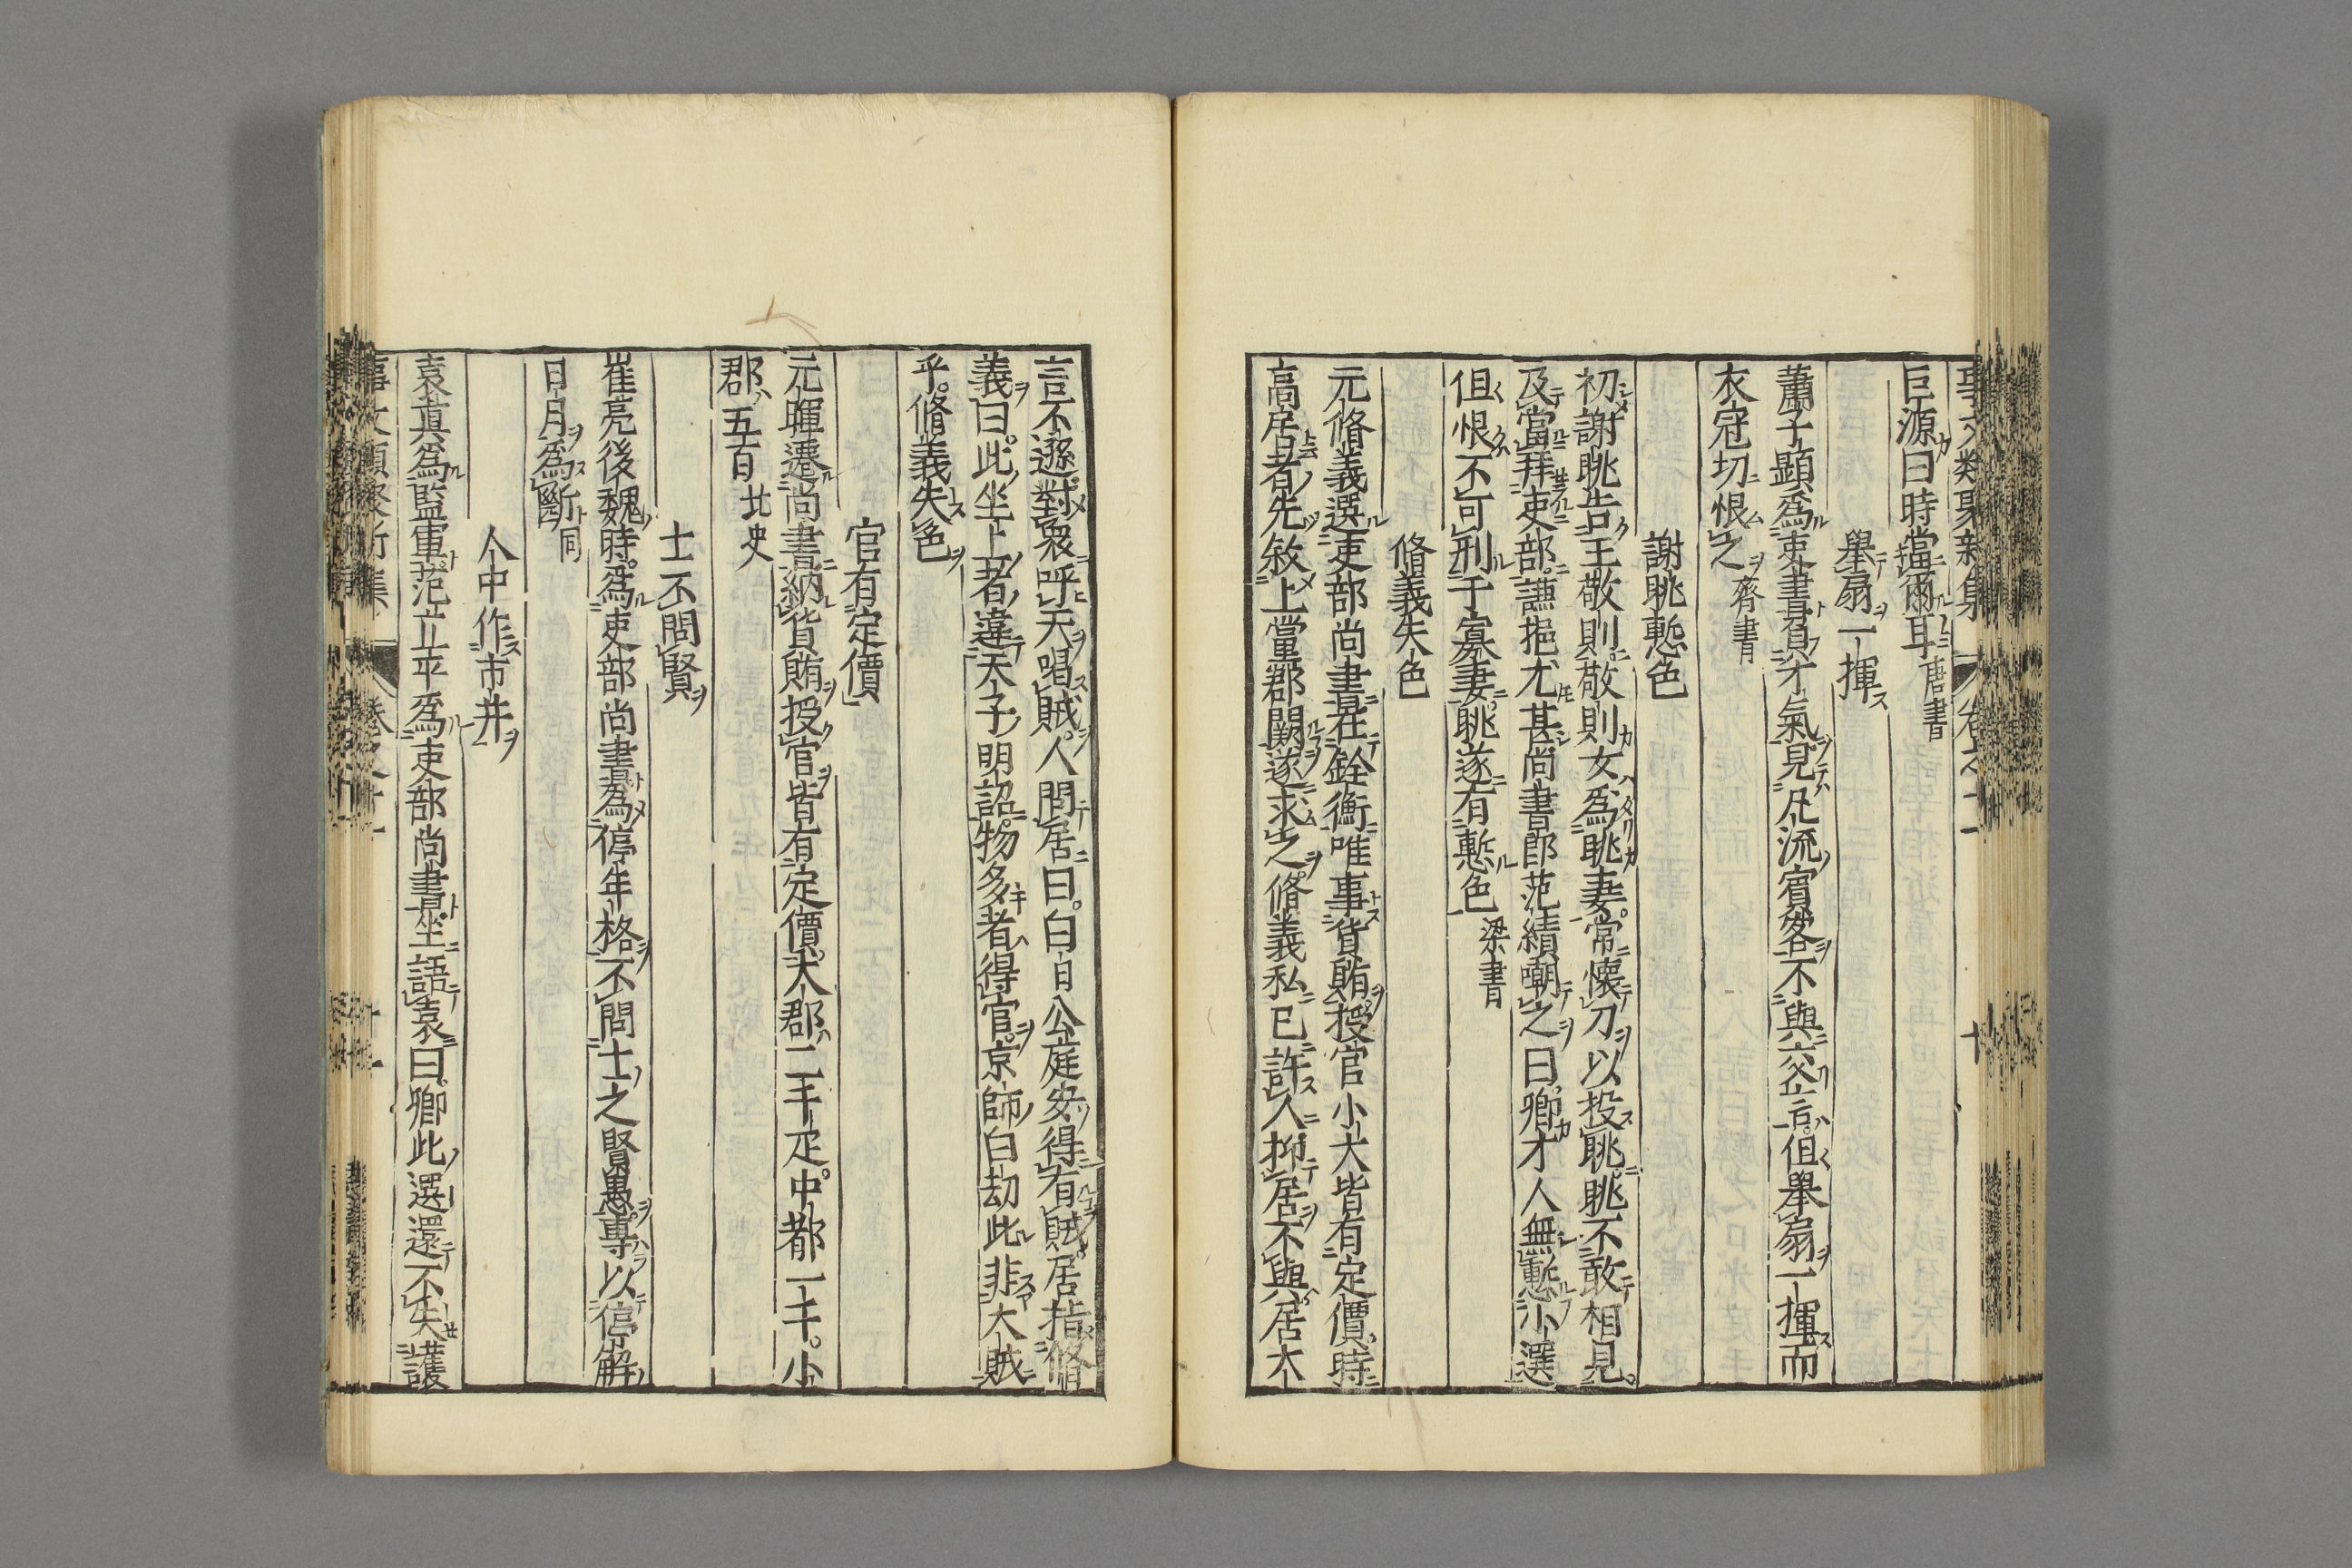 事文類聚新集 卷之二 十
巨源曰時當爾耳唐書
舉扇一揮
蕭子顯爲吏書負才氣見凡流賓客不與交言但舉扇一揮而
衣冠切恨之齊書
謝眺慙色
初謝眺告王敬則敬則女爲眺妻常懷刀以投眺眺不敢相見
及當拜吏部謙挹尤甚尚書郎范績嘲之曰卿才人無慙小選
但恨不可刑于寡妻眺遂有慙色梁書
脩義失色
元脩義選吏部尚書在銓衡唯事貨賄授官小大皆有定價時
高居者先敘上黨郡闕遂求之脩義私已許人抑居不與居大
言不遜對衆呼天唱賊人問居曰白日公庭安得有賊居指脩
義曰此坐上者違天子明詔物多者得官京師白劫此非大賊
乎脩義失色
官有定價
元暉遷尚書納貨賄授官皆有定價大郡二千疋中都一千小
郡五百北史
士不問賢
崔亮後魏時爲吏部尚書爲停年格不問士之賢愚專以停解
日月爲斷同
人中作市井
袁眞爲監軍范立平爲吏部尚書坐語袁曰卿此選還不失護
事文類聚新集 卷之二 十一